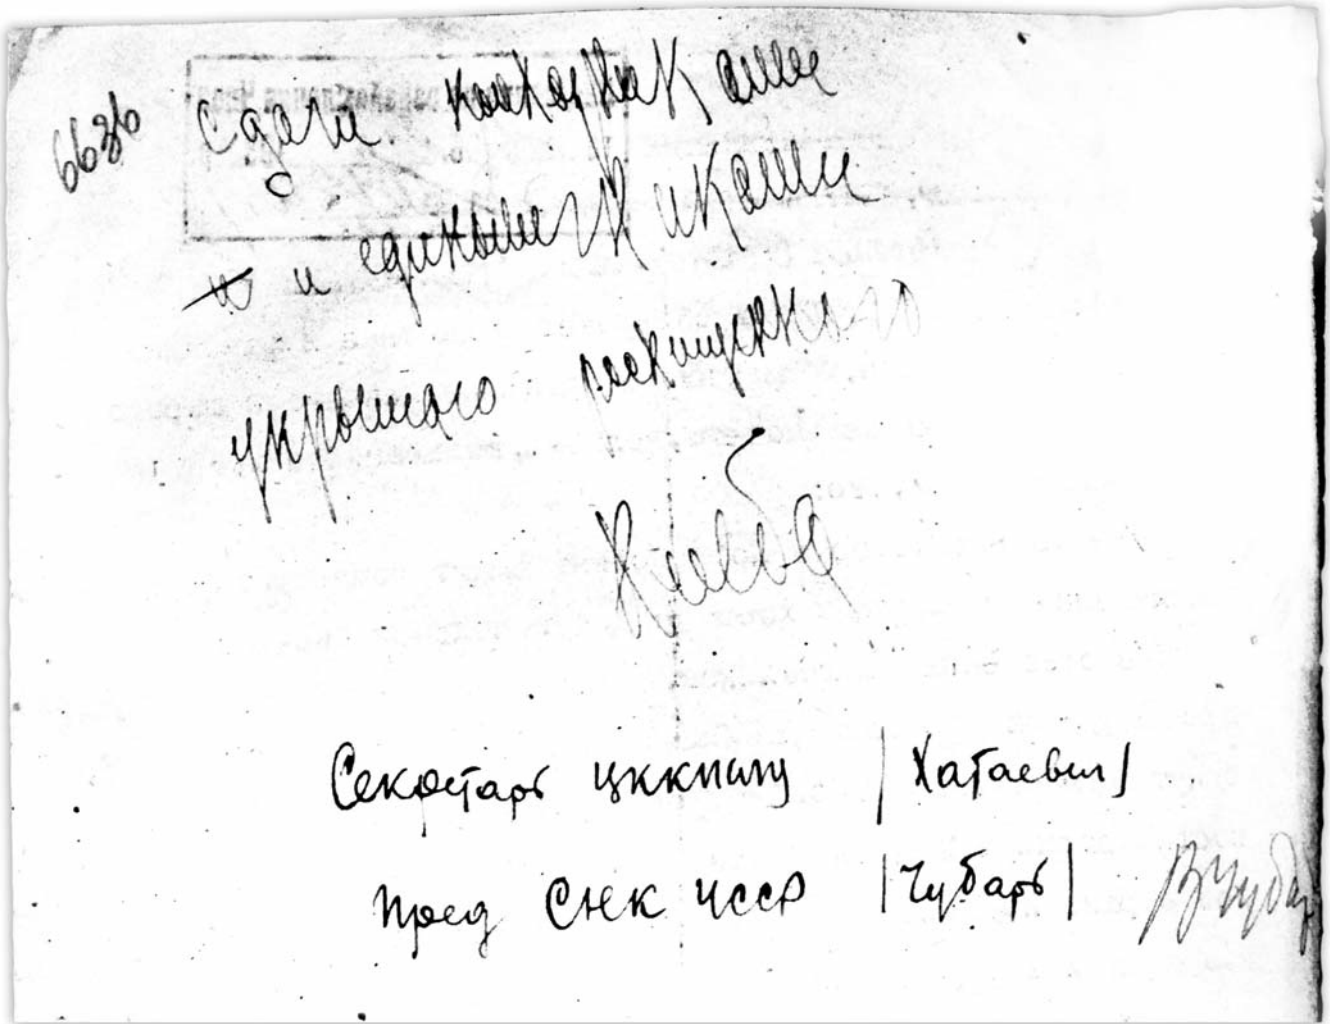 сдачи колхозниками
и и единоличниками
укрытого расхищенного
хлеба
Секретарь ЦККПбУ |Хатаевич|
Пред СНК УССР |Чубарь| ВЧубарь